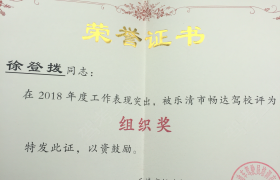 荣誉证书
徐登拨同志：
在2018年度工作表现突出，被乐清市畅达驾校评为
组织奖
特发此证，以资鼓励。